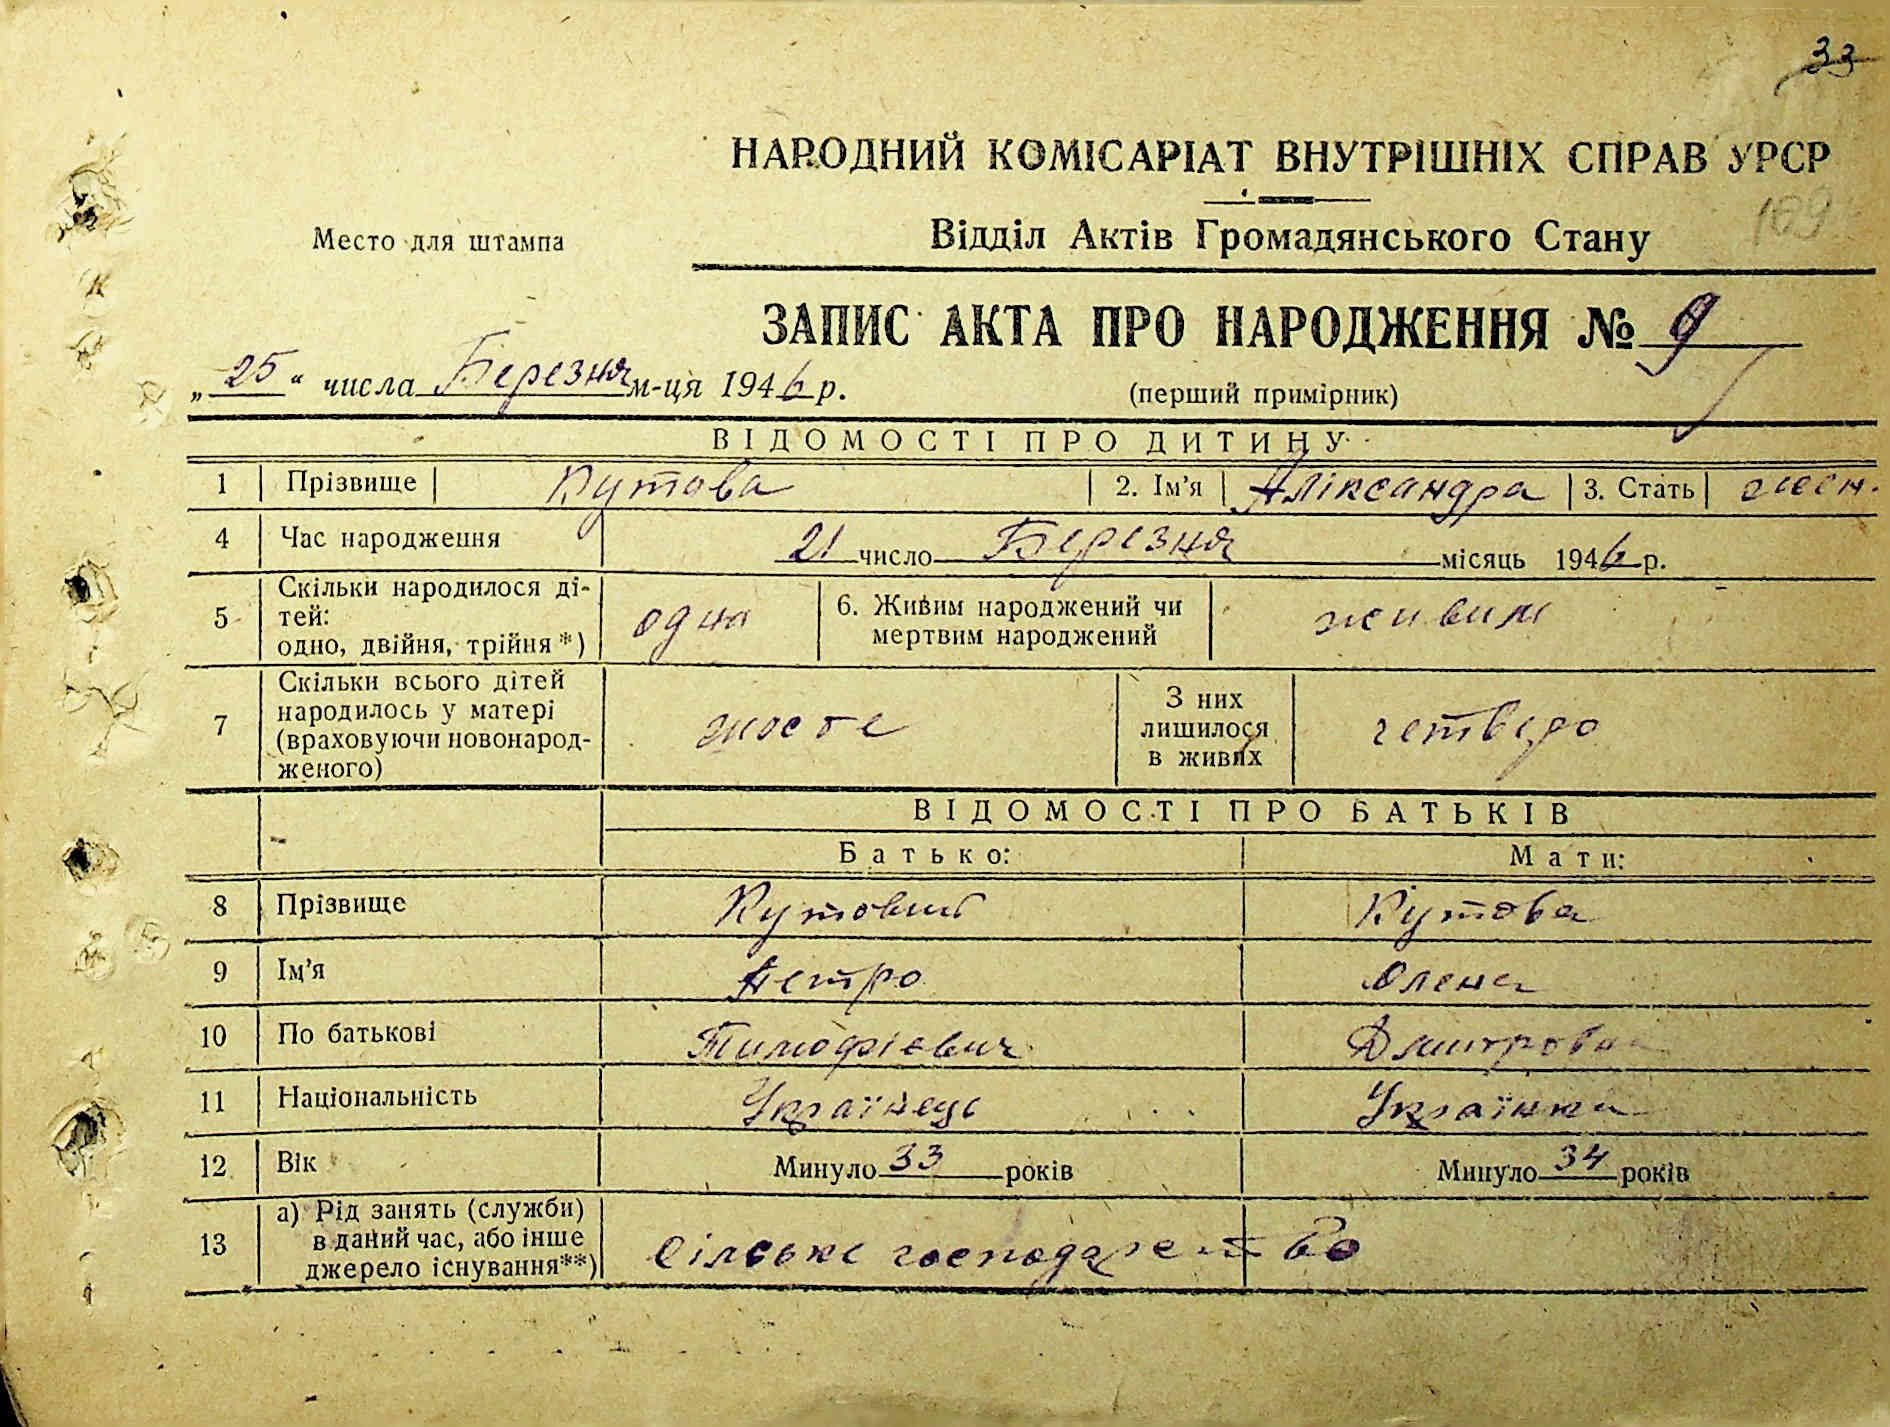 33
НАРОДНИЙ КОМІСАРІАТ ВНУТРІШНІХ СПРАВ УРСР
109
Место для штампа
Відділ Актів Громадянського Стану
ЗАПИС АКТА ПРО НАРОДЖЕННЯ № 9
„25“ числа Березня м-ця 1946 р.
(перший примірник)
ВІДОМОСТІ ПРО ДИТИНУ
1 Прізвище Кутова 2. Ім'я Аліксандра 3. Стать жен.
4 Час народження 21 число Березня місяць 1946 р.
5 Скільки народилося ді-
тей:
одно, двійня, трійня *) одна
6. Живим народжений чи
мертвим народжений живим
7 Скільки всього дітей
народилось у матері
(враховуючи новонарод-
женого) шосте
З них
лишилося
в живих четверо
ВІДОМОСТІ ПРО БАТЬКІВ
Батько: Мати:
8 Прізвище Кутовий Кутова
9 Ім'я Петро Олена
10 По батькові Тимофієвич Дмитровна
11 Національність Українець Українка
12 Вік Минуло 33 років Минуло 34 років
13 а) Рід занять (служби)
в даний час, або інше
джерело існування**) Сілське господарство